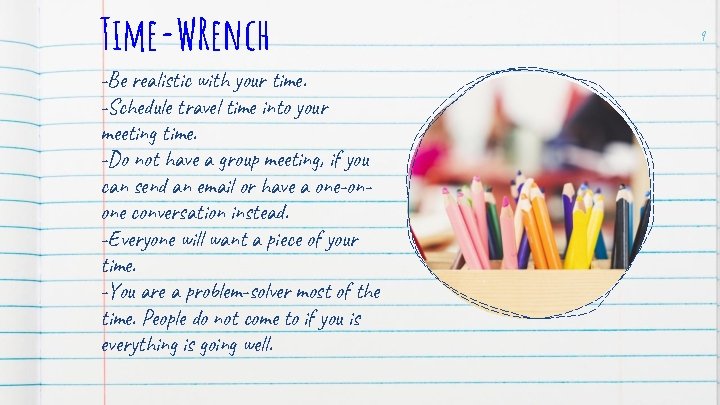 Time-Wrench
9
-Be realistic with your time.
-Schedule travel time into your
meeting time.
-Do not have a group meeting, if you
can send an email or have a one-on-
one conversation instead.
-Everyone will want a piece of your
time.
-You are a problem-solver most of the
time. People do not come to if you is
everything is going well.